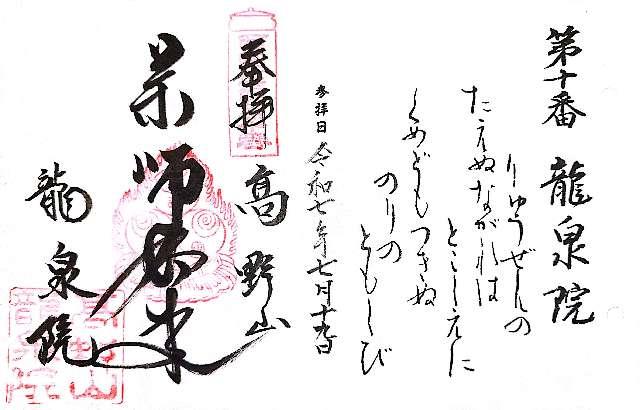 第十番 龍泉院
りゅうぜんの
たえぬながれは
とこしえに
くめどもつきぬ
のりの
ともしび
参拝日 令和七年七月十九日
奉拝
高野山
薬師如来
龍泉院